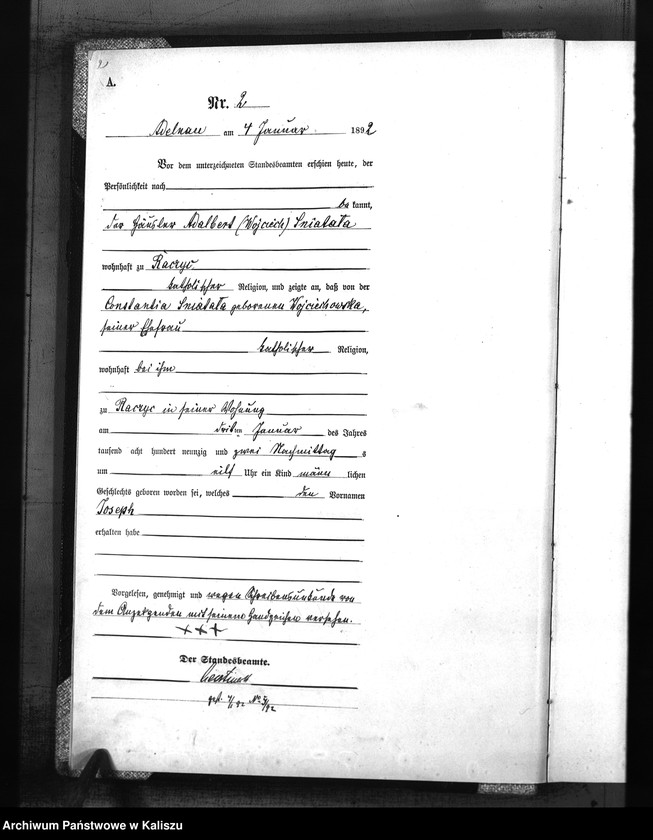 2
A.
Nr. 2
Adelnau am 4 Januar 1892
Vor dem unterzeichneten Standesbeamten erschien heute, der
Persönlichkeit nach
be kannt,
der Häusler Adalbert (Wojciech) Sniatała
wohnhaft zu Raczyc
katholischer Religion, und zeigte an, daß von der
Constantia Sniatała geborenen Wojciechowska,
seiner Ehefrau
katholischer Religion,
wohnhaft bei ihm
zu Raczyc in seiner Wohnung
am dritten Januar des Jahres
tausend acht hundert neunzig und zwei Nachmittag s
um eilf Uhr ein Kind männ lichen
Geschlechts geboren worden sei, welches den Vornamen
Joseph
erhalten habe
Vorgelesen, genehmigt und wegen Schreibensunkunde von
dem Anzeigenden mit seinem Handzeichen versehen.
+++
Der Standesbeamte.
Archiwum Państwowe w Kaliszu